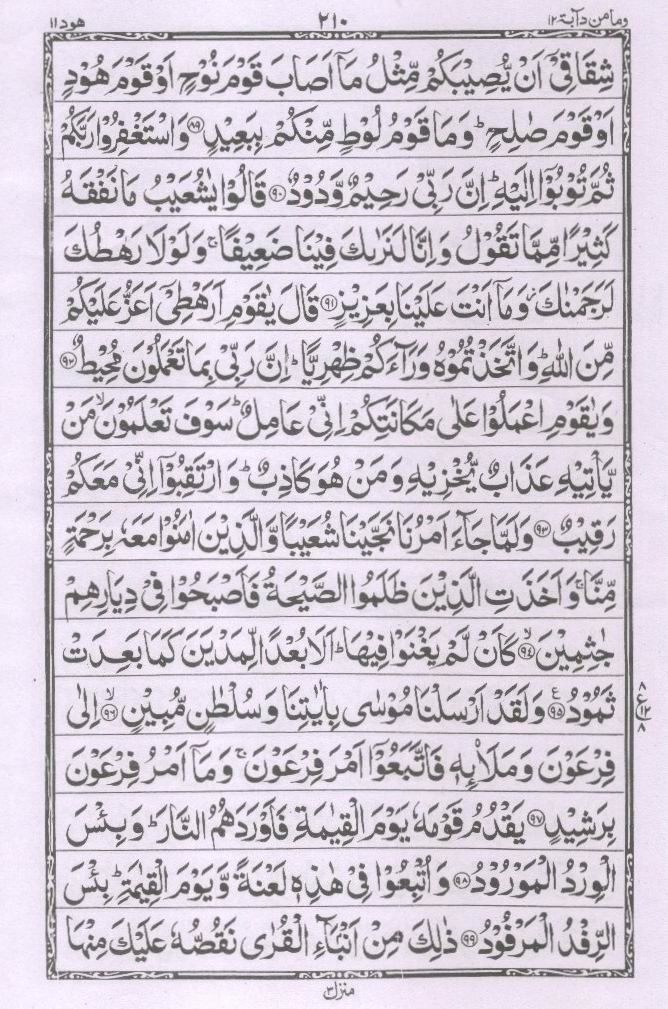 وما من دآبة ١٢ ٢١٠ هود ١١
شِقَاقِىْٓ اَنْ يُّصِيْبَكُمْ مِّثْلُ مَاۤ اَصَابَ قَوْمَ نُوْحٍ اَوْ قَوْمَ هُوْدٍ
اَوْ قَوْمَ صٰلِحٍ ؕ وَمَا قَوْمُ لُوْطٍ مِّنْكُمْ بِبَعِيْدٍ ۝٨٩ وَاسْتَغْفِرُوْا رَبَّكُمْ
ثُمَّ تُوْبُوْۤا اِلَيْهِ ؕ اِنَّ رَبِّىْ رَحِيْمٌ وَّدُوْدٌ ۝٩٠ قَالُوْا يٰشُعَيْبُ مَا نَفْقَهُ
كَثِيْرًا مِّمَّا تَقُوْلُ وَاِنَّا لَنَرٰىكَ فِيْنَا ضَعِيْفًا ۚ وَلَوْلَا رَهْطُكَ
لَرَجَمْنٰكَ ۫ وَمَاۤ اَنْتَ عَلَيْنَا بِعَزِيْزٍ ۝٩١ قَالَ يٰقَوْمِ اَرَهْطِىْۤ اَعَزُّ عَلَيْكُمْ
مِّنَ اللّٰهِ ؕ وَاتَّخَذْتُمُوْهُ وَرَآءَكُمْ ظِهْرِيًّا ؕ اِنَّ رَبِّىْ بِمَا تَعْمَلُوْنَ مُحِيْطٌ ۝٩٢
وَيٰقَوْمِ اعْمَلُوْا عَلٰى مَكَانَتِكُمْ اِنِّىْ عَامِلٌ ؕ سَوْفَ تَعْلَمُوْنَ ۙ مَنْ
يَّاْتِيْهِ عَذَابٌ يُّخْزِيْهِ وَمَنْ هُوَ كَاذِبٌ ؕ وَارْتَقِبُوْۤا اِنِّىْ مَعَكُمْ
رَقِيْبٌ ۝٩٣ وَلَمَّا جَآءَ اَمْرُنَا نَجَّيْنَا شُعَيْبًا وَّالَّذِيْنَ اٰمَنُوْا مَعَهٗ بِرَحْمَةٍ
مِّنَّا ۚ وَاَخَذَتِ الَّذِيْنَ ظَلَمُوا الصَّيْحَةُ فَاَصْبَحُوْا فِىْ دِيَارِهِمْ
جٰثِمِيْنَ ۙ۝٩٤ كَاَنْ لَّمْ يَغْنَوْا فِيْهَا ؕ اَلَا بُعْدًا لِّمَدْيَنَ كَمَا بَعِدَتْ
ثَمُوْدُ ۝٩٥ ع وَلَقَدْ اَرْسَلْنَا مُوْسٰى بِاٰيٰتِنَا وَسُلْطٰنٍ مُّبِيْنٍ ۙ۝٩٦ اِلٰى
٨ ع ١٢ ٨
فِرْعَوْنَ وَمَلَا۟ئِهٖ فَاتَّبَعُوْۤا اَمْرَ فِرْعَوْنَ ۚ وَمَاۤ اَمْرُ فِرْعَوْنَ
بِرَشِيْدٍ ۝٩٧ يَقْدُمُ قَوْمَهٗ يَوْمَ الْقِيٰمَةِ فَاَوْرَدَهُمُ النَّارَ ؕ وَبِئْسَ
الْوِرْدُ الْمَوْرُوْدُ ۝٩٨ وَاُتْبِعُوْا فِىْ هٰذِهٖ لَعْنَةً وَّيَوْمَ الْقِيٰمَةِ ؕ بِئْسَ
الرِّفْدُ الْمَرْفُوْدُ ۝٩٩ ذٰلِكَ مِنْ اَنْۢبَآءِ الْقُرٰى نَقُصُّهٗ عَلَيْكَ مِنْهَا
منزل ٣